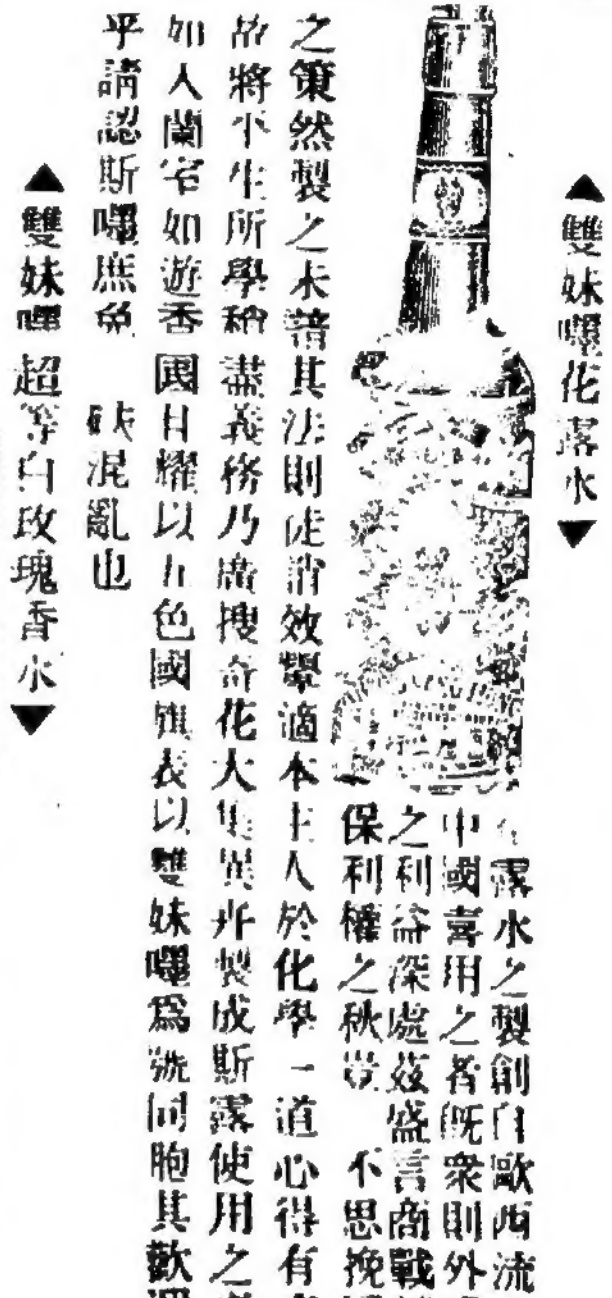 ▲雙妹嚜花露水▼
露水之製創自歐西流
中國喜用之者既衆則外
之利益深處茲盛言商戰
保利權之秋豈 不思挽
之策然製之未諳其法則徒滑效顰適本主人於化學一道心得有
故將平生所學稍盡義務乃廣搜奇花大集異卉製成斯露使用之
如入蘭宅如遊香國且耀以五色國旗表以雙妹嚜爲號同胞其歡迎
乎請認斯嚜庶免 魚混亂也
▲雙妹嚜超等白玫瑰香水▼